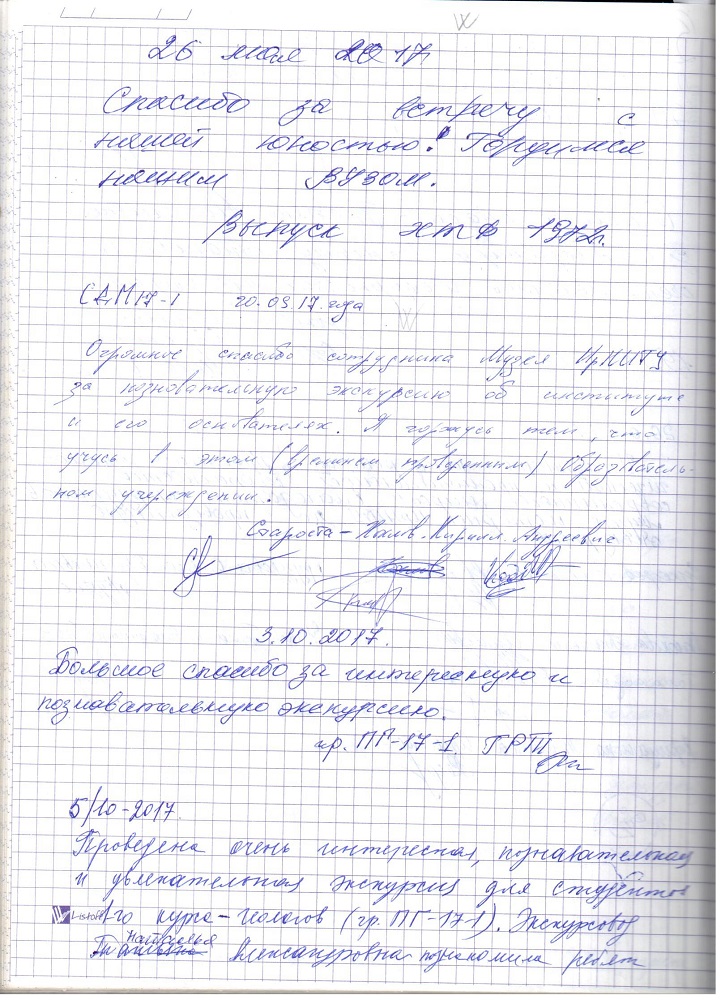 26 мая 2017
Спасибо за встречу с
нашей юностью! Гордимся
нашим ВУЗом.
Выпуск ХТФ 1972г.
СДМ17-1 20.09.17.года
Огромное спасибо сотрудника Музея ИрНИТУ
за познавательную экскурсию об институте
и его основателях. Я горжусь тем, что
учусь в этом (временем проверенным) Образователь-
ном учереждении.
Староста – Кирилл Андреевич
3.10.2017.
Большое спасибо за интересную и
познавательную экскурсию.
гр. ПГ-17-1.
5/10-2017.
Проведена очень интересная, познавательная
и увлекательная экскурсия для студентов
Listoff 1-го курса-геологов (гр. ПГ-17-1). Экскурсовод
Наталья
Татьяна Александровна познакомила ребят